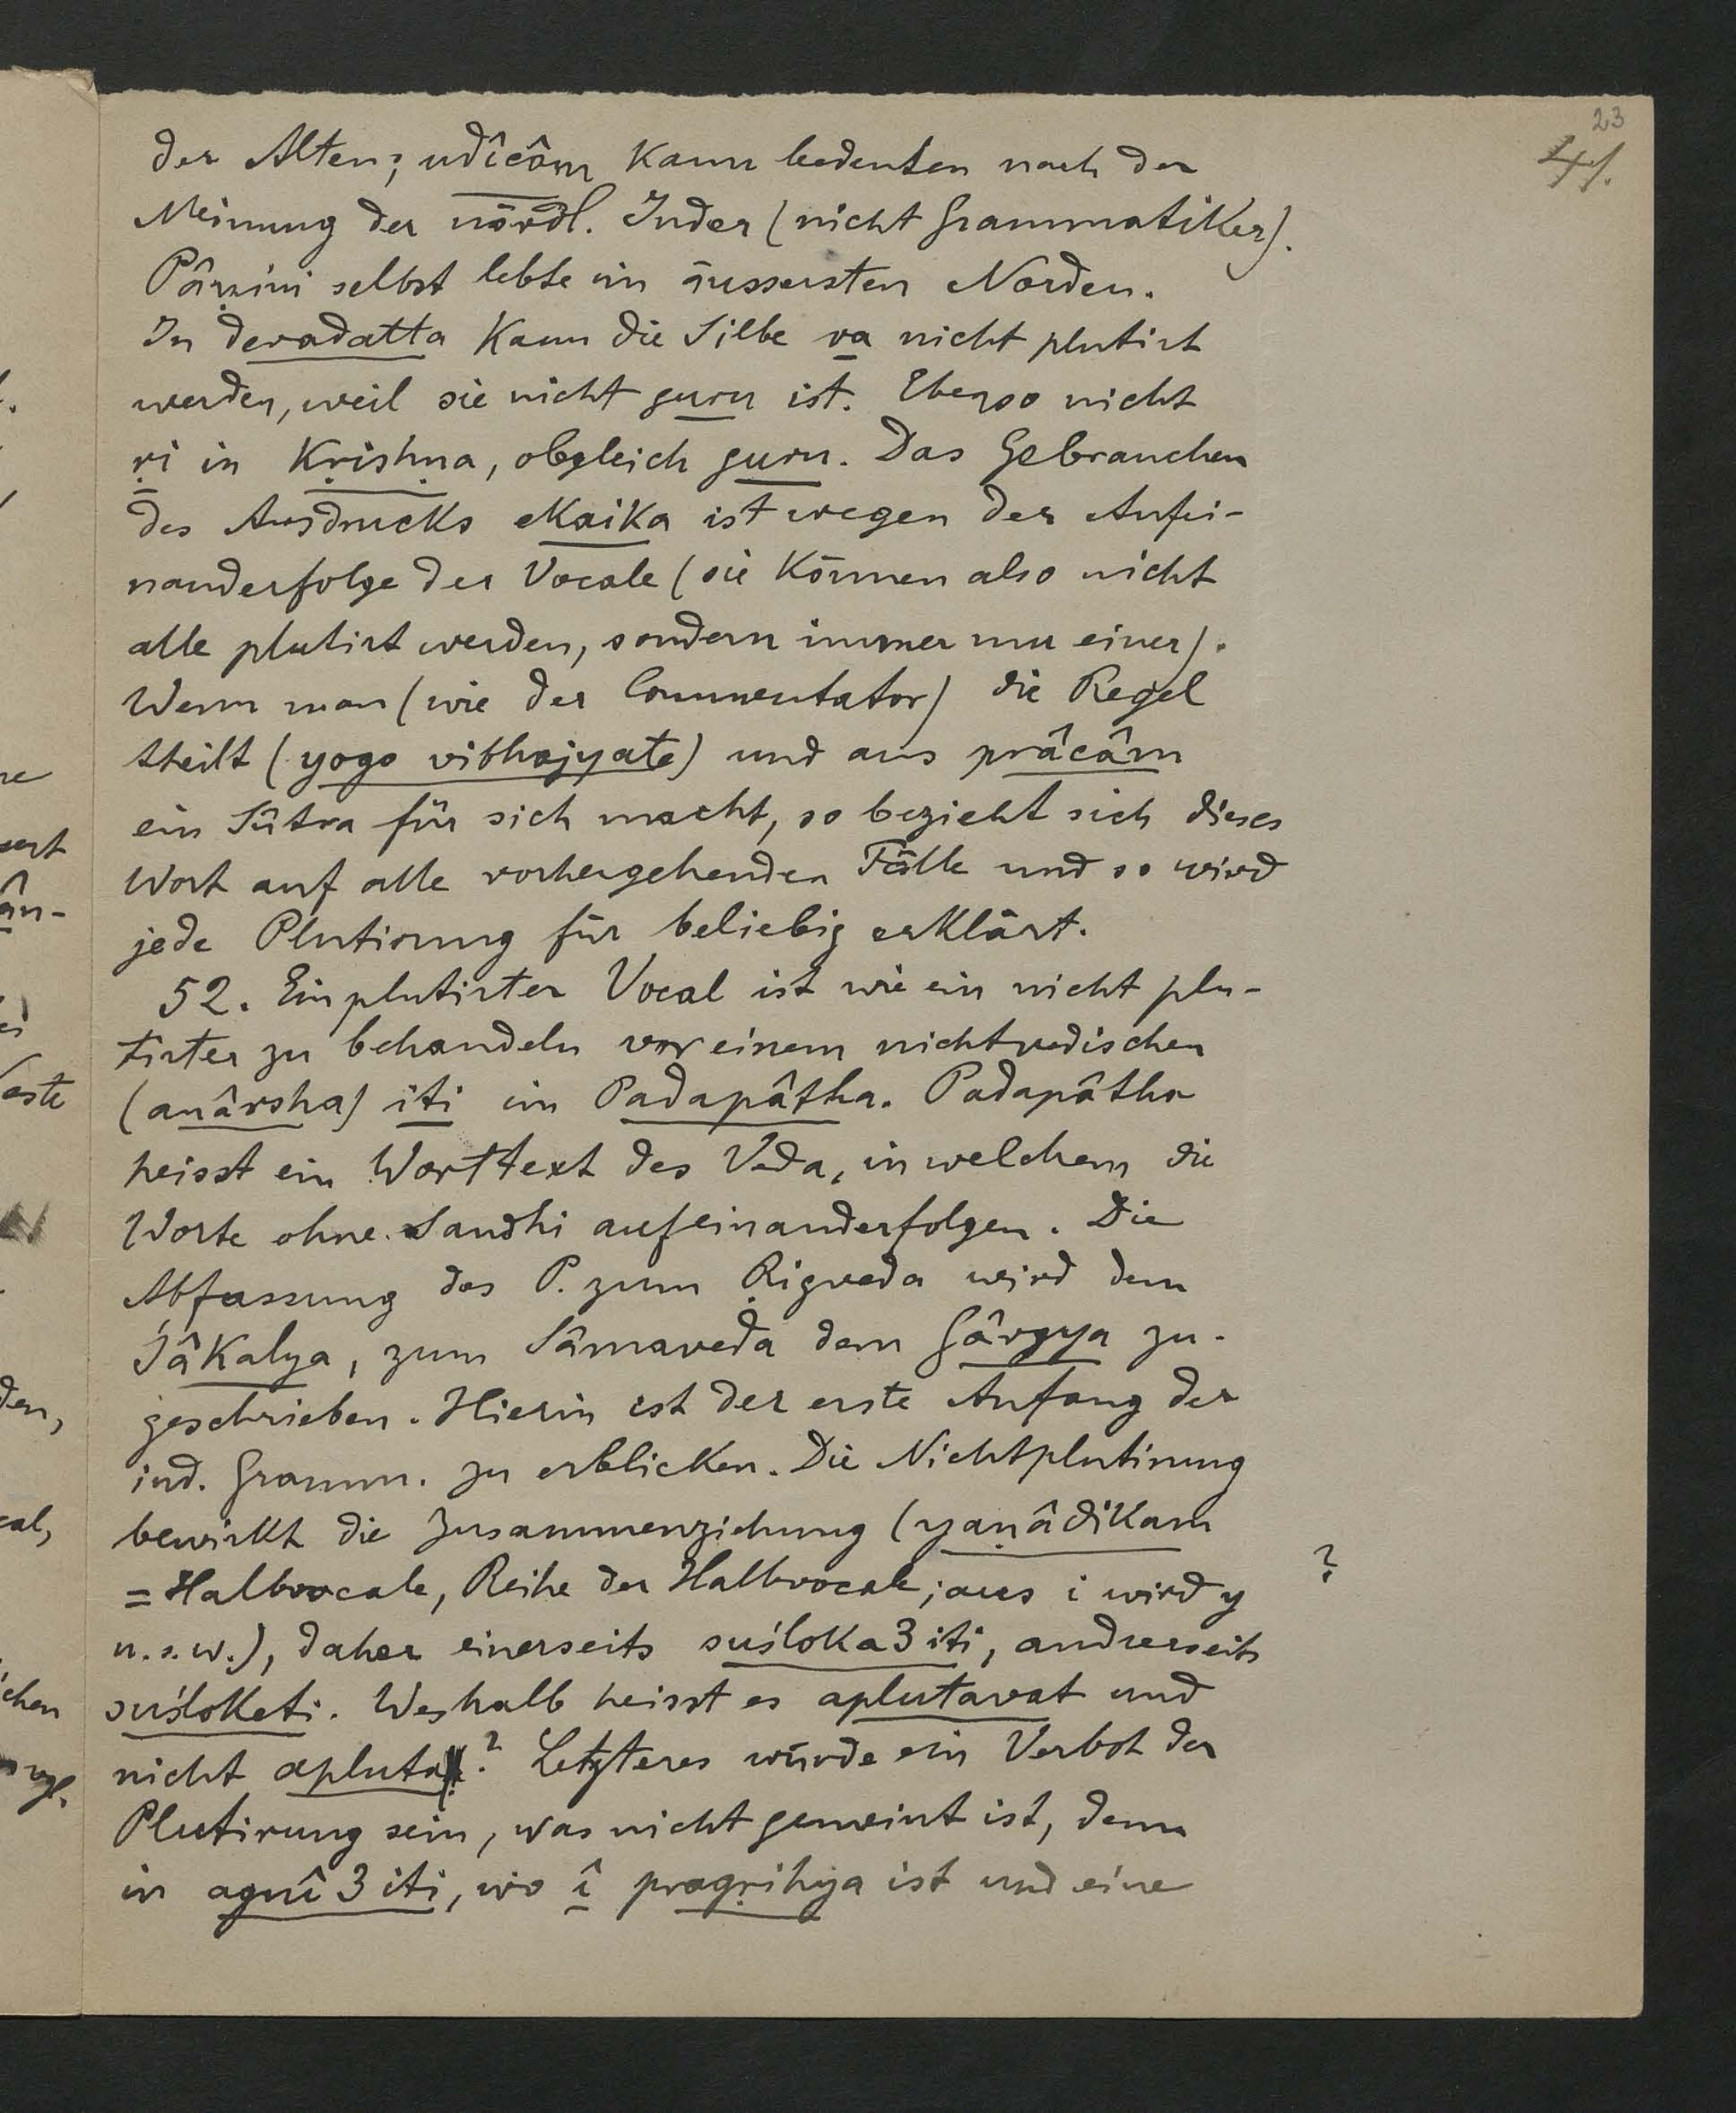 23
der Alten; udîcâm kann bedeuten nach der
Meinung der nördl. Inder (nicht Grammatiker).
Pâṇini selbst lebte im äussersten Norden.
In devadatta kann die Silbe va nicht plutirt
werden, weil sie nicht guru ist. Ebenso nicht
ṛi in Kṛishṇa, obgleich guru. Das Gebrauchen
des Ausdrucks ekaika ist wegen der Aufei-
nanderfolge der Vocale (sie können also nicht
alle plutirt werden, sondern immer nur einer).
Wenn man (wie der Commentator) die Regel
theilt (yogo vibhajyate) und aus prâcâm
ein Sûtra für sich macht, so bezieht sich dieses
Wort auf alle vorhergehenden Fälle und so wird
jede Plutirung für beliebig erklärt.
52. Ein plutirter Vocal ist wie ein nicht plu-
tirter zu behandeln vor einem nichtvedischen
(anârsha) iti im Padapâṭha. Padapâṭha
heisst ein Worttext des Veda, in welchem die
Worte ohne Sandhi aufeinanderfolgen. Die
Abfassung des P. zum Ṛigveda wird dem
Śâkalya, zum Sâmaveda dem Gârgya zu-
geschrieben. Hierin ist der erste Anfang der
ind. Gramm. zu erblicken. Die Nichtplutirung
bewirkt die Zusammenziehung (yaṇâdikam
= Halbvocale, Reihe der Halbvocale; aus i wird y ?
u.s.w.), daher einerseits suśloka3 iti, andrerseits
suśloketi. Weshalb heisst es aplutavat und
nicht apluta? Letzteres würde ein Verbot der
Plutirung sein, was nicht gemeint ist, denn
in agnî3 iti, wo î pragṛihya ist und eine